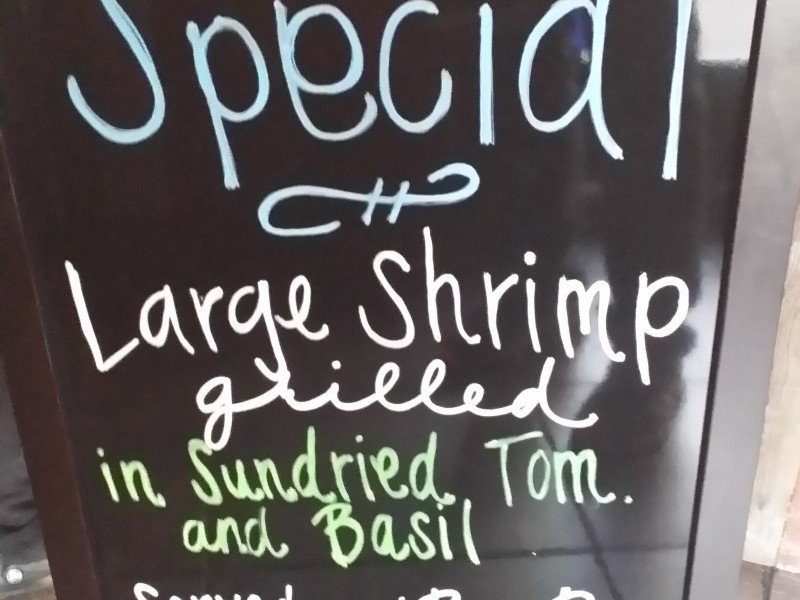 Special
Large Shrimp
grilled
in Sundried Tom.
and Basil
Served